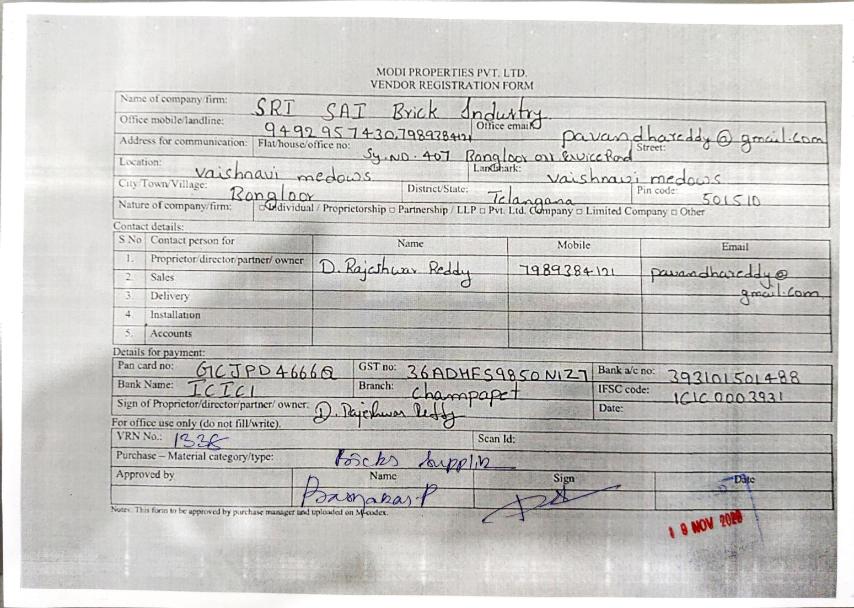 MODI PROPERTIES PVT. LTD.
VENDOR REGISTRATION FORM
Name of company/firm: SRI SAI Brick Industry
Office mobile/landline: 9492957430,7989384121 Office email: pavandhareddy@gmail.com
Address for communication: Flat/house/office no: Sy.NO. 407 Bongloor Street:
Location: Vaishnavi medows Landmark: Vaishnavi medows
City/Town/Village: Bongloor District/State: Telangana Pin code: 501510
Nature of company/firm: □ Individual / Proprietorship □ Partnership / LLP □ Pvt. Ltd. Company □ Limited Company □ Other
Contact details:
S No Contact person for Name Mobile Email
1. Proprietor/director/partner/ owner D. Rajeshwar Reddy 7989384121 pavandhareddy@
2. Sales gmail.com
3. Delivery
4. Installation
5. Accounts
Details for payment:
Pan card no: GCJPD4666Q GST no: 36ADHFS9850N1Z7 Bank a/c no: 393101501488
Bank Name: ICICI Branch: Champapet IFSC code: ICIC0003931
Sign of Proprietor/director/partner/ owner: D. Rajeshwar Reddy Date:
For office use only (do not fill/write).
VRN No.: 1338 Scan Id:
Purchase – Material category/type: Bricks
Approved by Name Sign Date
19 NOV 2020
Notes: This form to be approved by purchase manager and uploaded on M-codex.